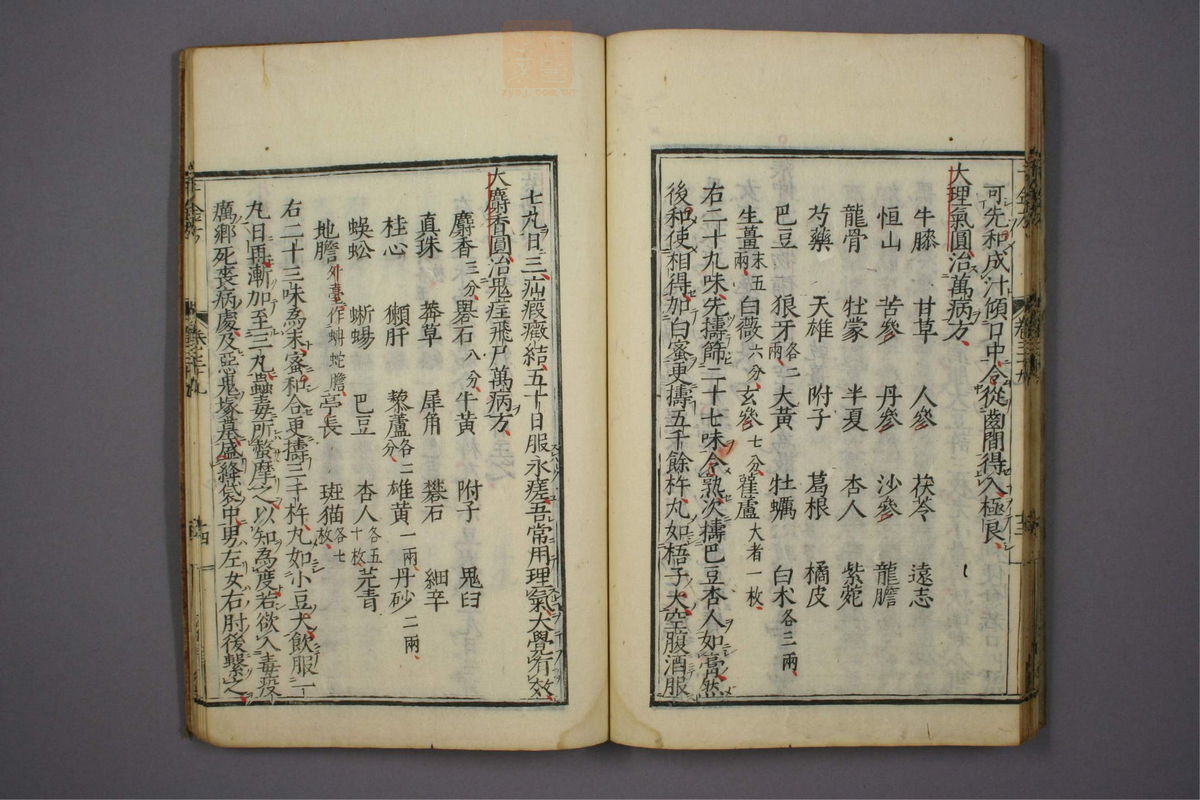 可先和成汁傾口中令從齒間得入極良
大理氣圓治萬病方
牛膝　甘草　人參　茯苓　遠志
恒山　苦參　丹參　沙參　龍膽
龍骨　牡蒙　半夏　杏人　紫菀
芍藥　天雄　附子　葛根　橘皮
巴豆　狼牙各二兩　大黃　牡蠣　白朮各三兩
生薑末五兩　白薇六分　玄參七分　雚盧大者一枚
右二十九味先擣篩二十七味令熟次擣巴豆杏人如膏然
後和使相得加白蜜更擣五千餘杵丸如梧子大空腹酒服
七丸日三疝瘕癥結五十日服永瘥吾常用理氣大覺有效
大麝香圓治鬼疰飛尸萬病方
麝香三分　礜石八分　牛黃　附子　鬼臼
真珠　莽草　犀角　礬石　細辛
桂心　獺肝　藜蘆各二分　雄黃一兩　丹砂二兩
蜈蚣　蜥蜴　巴豆　杏人各五十枚　芫青
地膽外臺作蚺蛇膽　亭長　斑猫各七枚
右二十三味為末蜜和合更擣三千杵丸如小豆大飲服一
丸日再漸加至三丸蟲毒所螫摩之以知為度若欲入毒疫
癘鄉死喪病處及惡鬼塚墓盛絳袋中男左女右肘後繫之
千金方
卷三十九